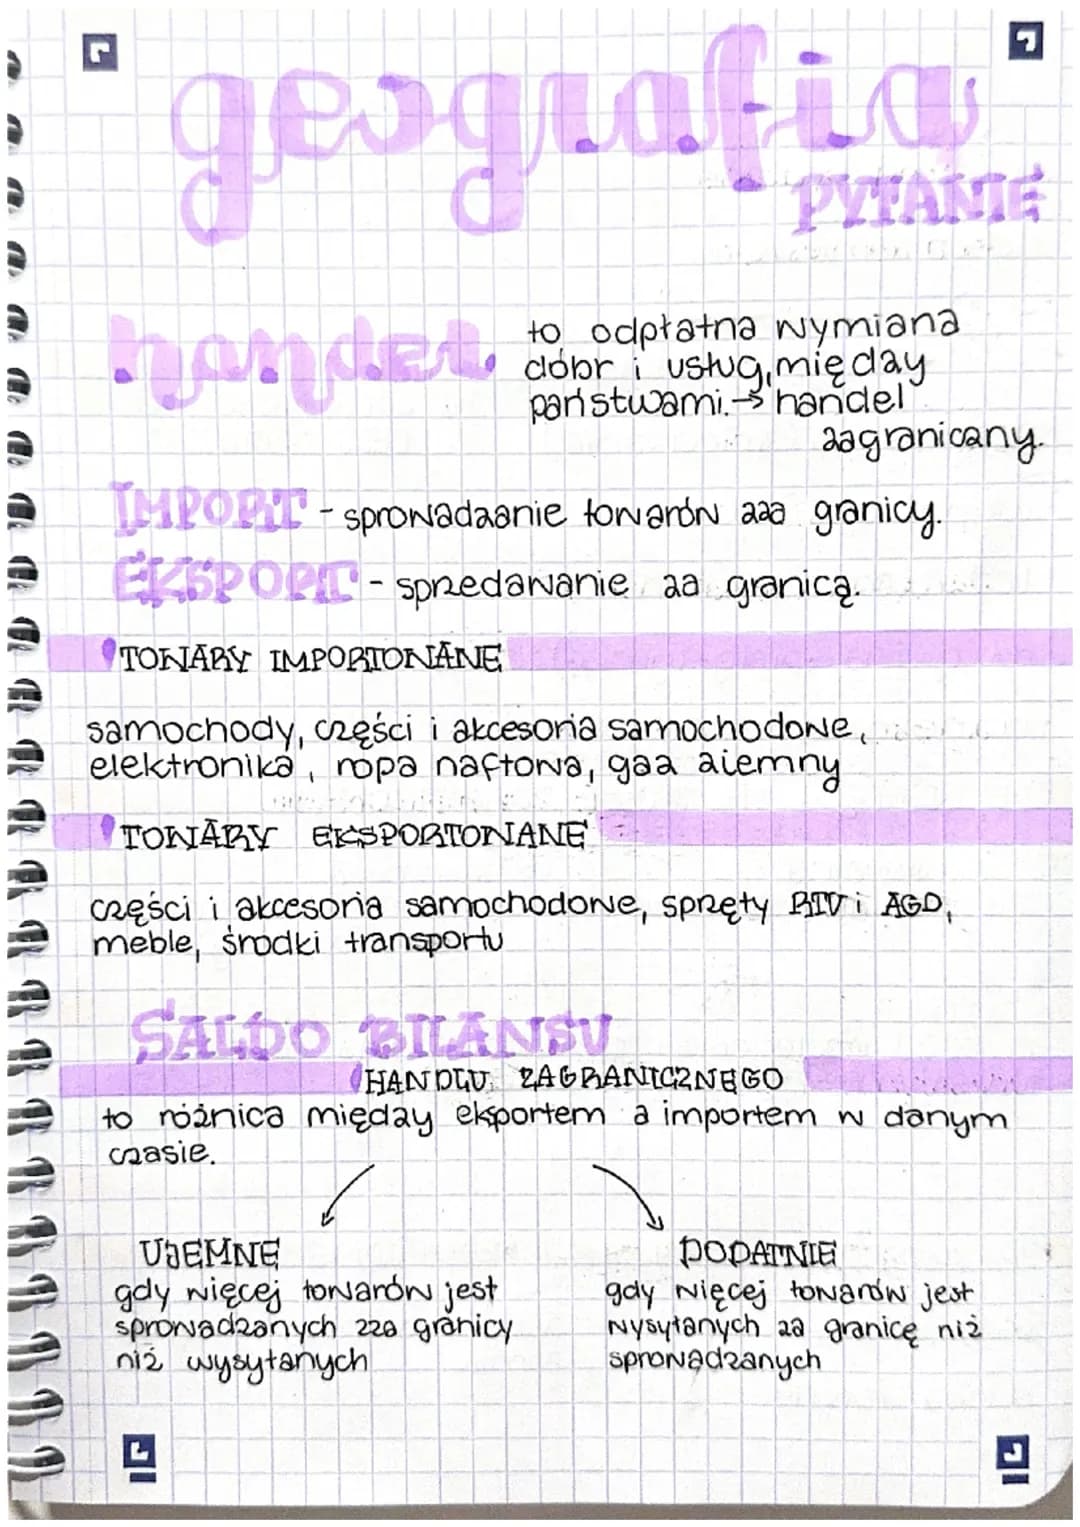 geografia
PYTANIE
handel
to odpłatna wymiana
dóbr i usług, między
państwami. → handel
zagraniczny.
IMPORT - sprowadzanie towarów zza granicy.
EKSPORT - sprzedawanie za granicą.
TOWARY IMPORTOWANE
samochody, części i akcesoria samochodowe,
elektronika, ropa naftowa, gaz ziemny
TOWARY EKSPORTOWANE
części i akcesoria samochodowe, sprzęty RTV i AGD,
meble, środki transportu
SALDO BILANSU
HANDLU ZAGRANICZNEGO
to różnica między eksportem a importem w danym
czasie.
UJEMNE
gdy więcej towarów jest
sprowadzanych zza granicy
niż wysyłanych
DODATNIE
gdy więcej towarów jest
wysyłanych za granicę niż
sprowadzanych